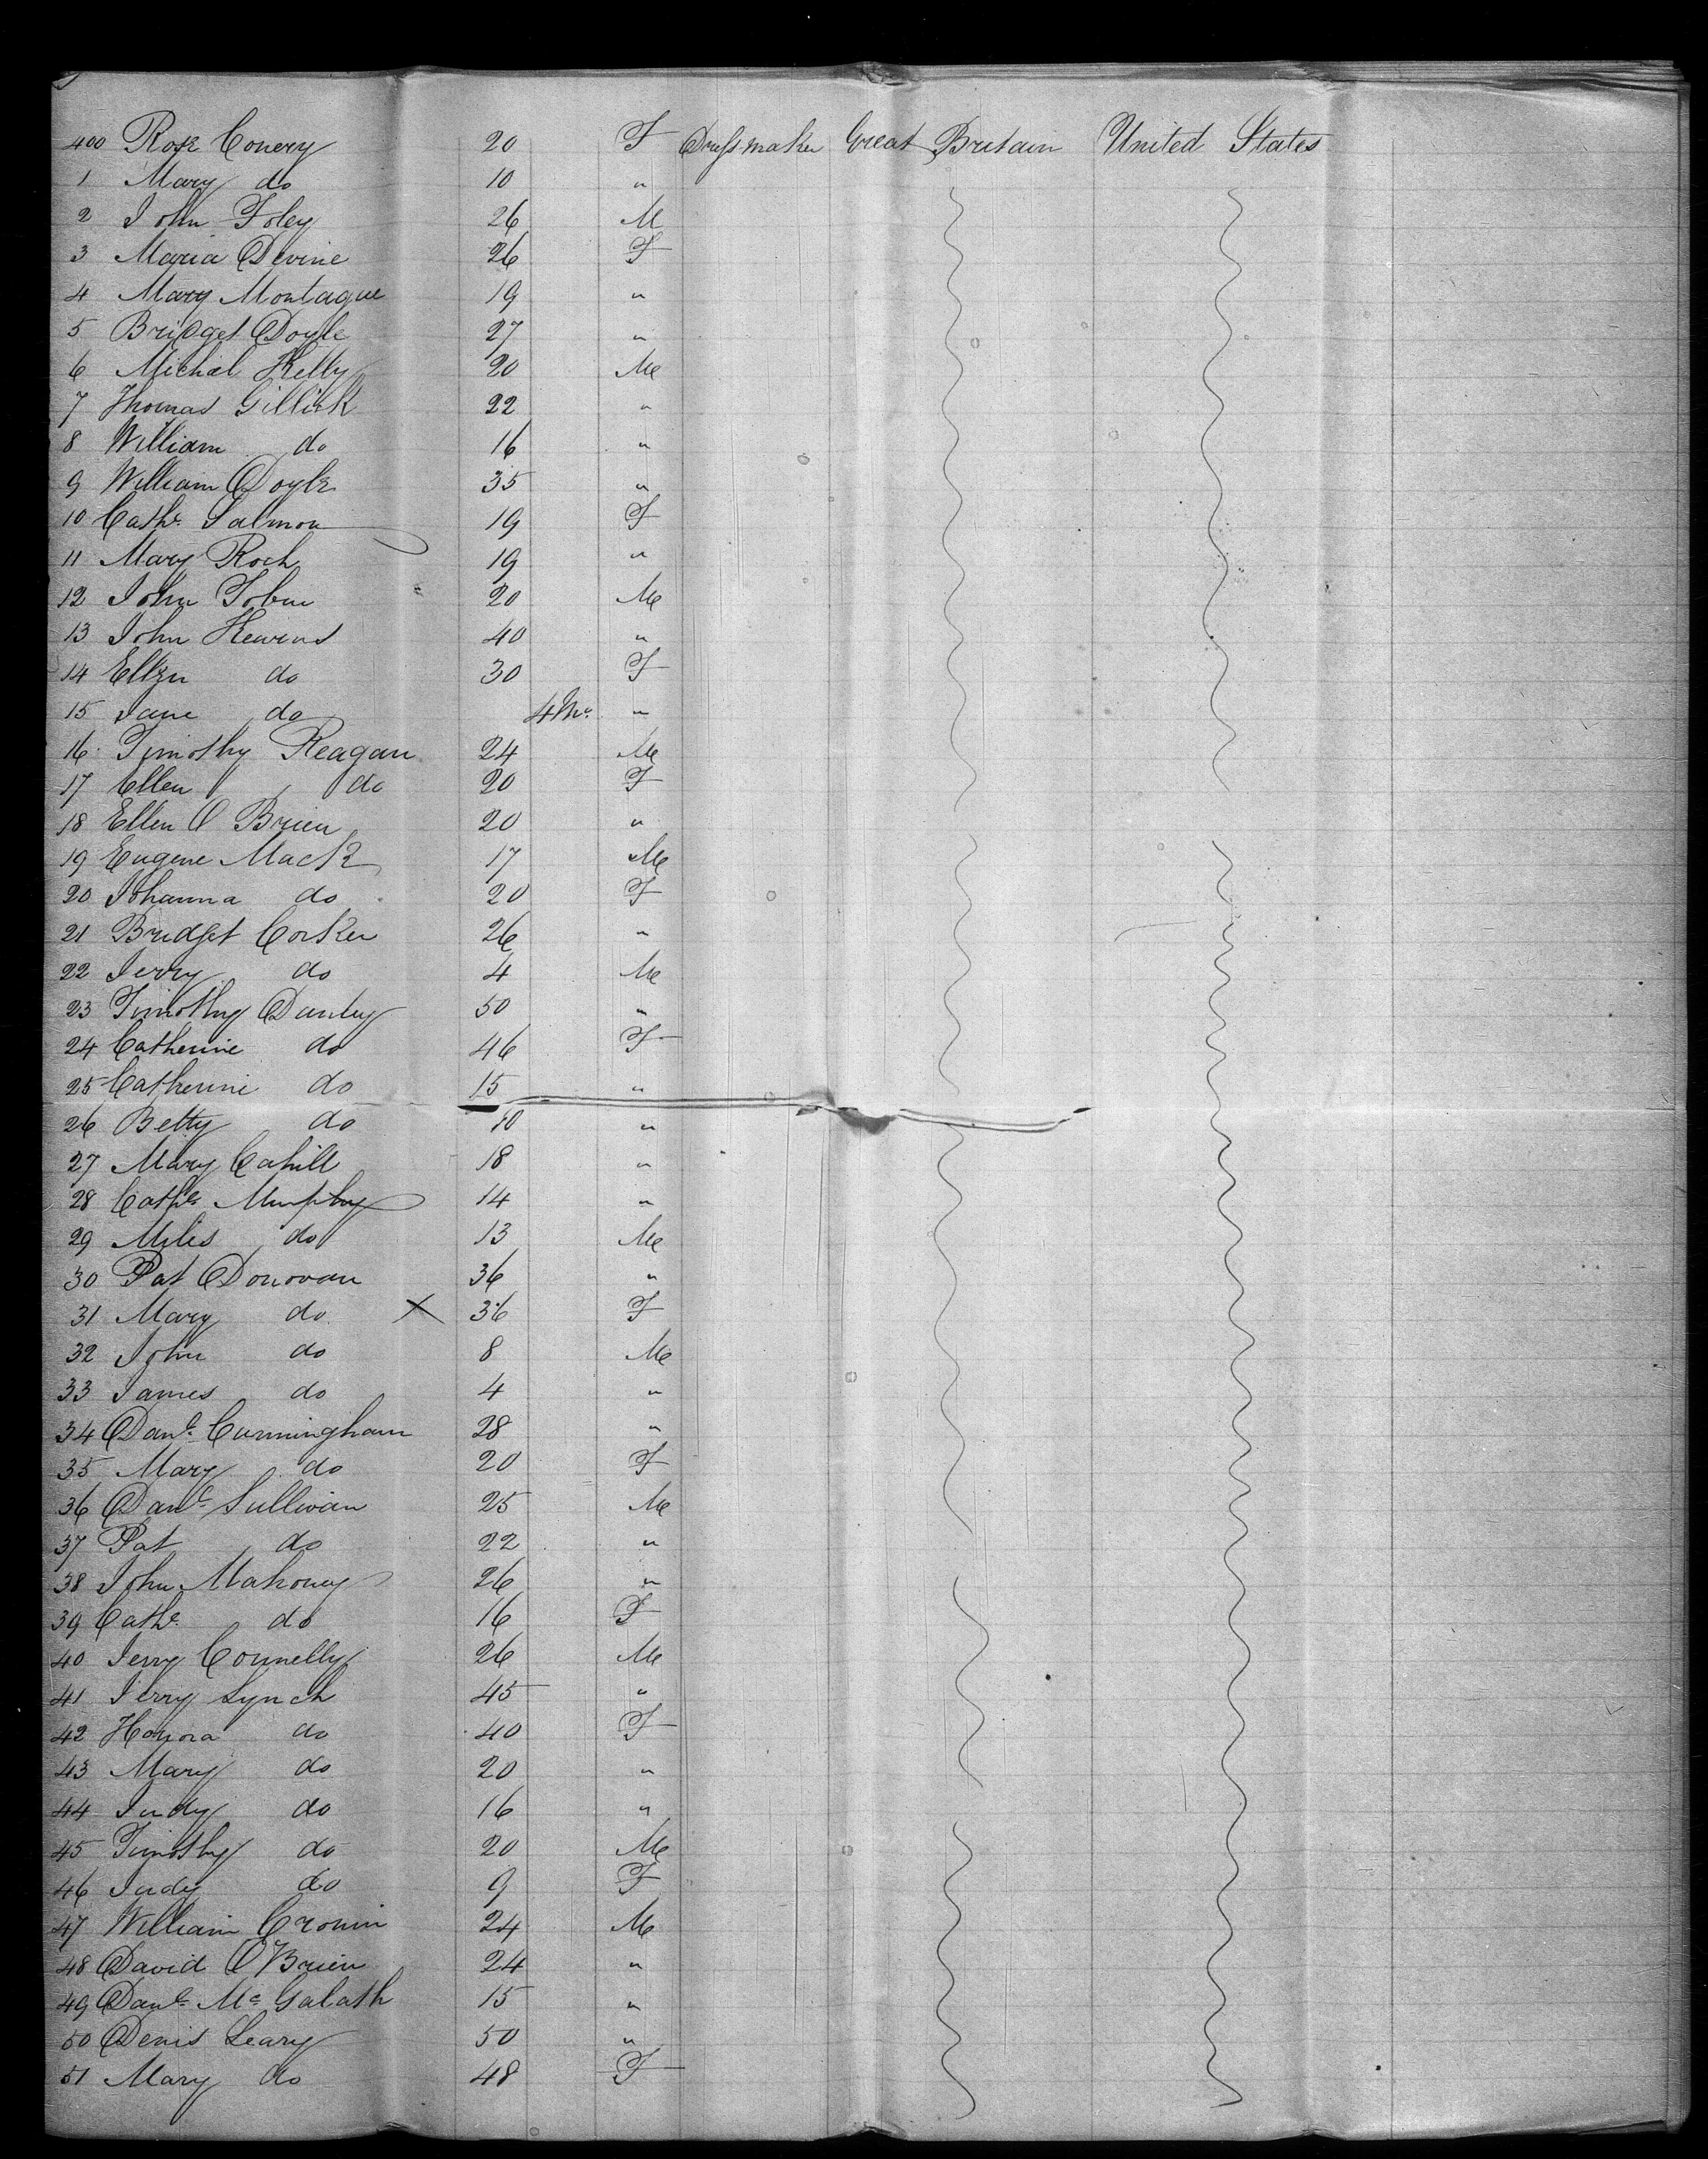 400 Rose Conery 20 F Dressmaker Great Britain United States
1 Mary do 10 "
2 John Foley 26 M
3 Maria Devine 26 F
4 Mary Montague 19 "
5 Bridget Doyle 27 "
6 Michael Kelly 20 M
7 Thomas Gillick 22 "
8 William do 16 "
9 William Doyle 35 "
10 Cathe Salmon 19 F
11 Mary Roch 19 "
12 John Tobin 20 M
13 John 40 "
14 Ellen do 30 F
15 Jane do 4 Mo "
16 Timothy Reagan 24 M
17 Ellen do 20 F
18 Ellen O Brien 20 "
19 Eugene Mack 17 M
20 Johanna do 20 F
21 Bridget Corker 26 "
22 Jerry do 4 M
23 Timothy 50 "
24 Catherine do 46 F
25 Catherine do 15 "
26 Betty do 10 "
27 Mary Cahill 18 "
28 Cathe Murphy 14 "
29 Miles do 13 M
30 Pat Donovan 36 "
31 Mary do X 36 F
32 John do 8 M
33 James do 4 "
34 Danl Cunningham 28 "
35 Mary do 20 F
36 Danl Sullivan 25 M
37 Pat do 22 "
38 John Mahoney 26 "
39 Cathe do 16 F
40 Jerry Connelly 26 M
41 Jerry Lynch 45 "
42 Honora do 40 F
43 Mary do 20 "
44 Judy do 16 "
45 Timothy do 20 M
46 Judy do 9 F
47 William Cronin 24 M
48 David O'Brien 24 "
49 Danl Mc Galath 15 "
50 Denis Leary 50 "
51 Mary do 48 F